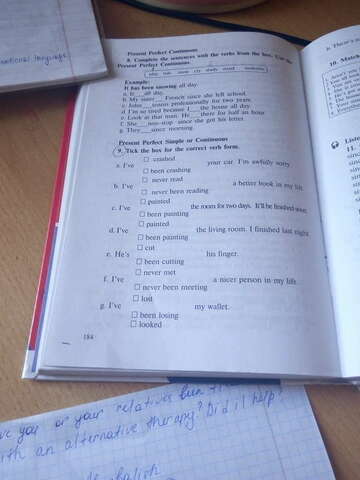 Present Perfect Continuous
8. Complete the sentences with the verbs from the box. Use the
Present Perfect Continuous.
play rain snow cry study stand
Example:
It has been snowing all day.
a. It all day.
b. My sister French since she left school.
c. John tennis professionally for two years.
d. I'm so tired because I the house all day.
e. Look at that man. He there for half an hour
f. She non-stop since she got his letter
g. They since morning
Present Perfect Simple or Continuous
9. Tick the box for the correct verb form.
□ crashed
a. I've your car. I'm awfully sorry
□ been crashing
□ never read
b. I've a better book in my life.
□ never been reading
□ painted
c. I've the room for two days. It'll be finished soon.
□ been painting
□ painted
d. I've the living room. I finished last night.
□ been painting
□ cut
e. He's his finger.
□ been cutting
□ never met
f. I've a nicer person in my life.
□ never been meeting
□ lost
g. I've my wallet.
□ been losing
□ looked
184
10. Match
Listen
11.
you or your relatives been
with an alternative therapy? Did it help?
language